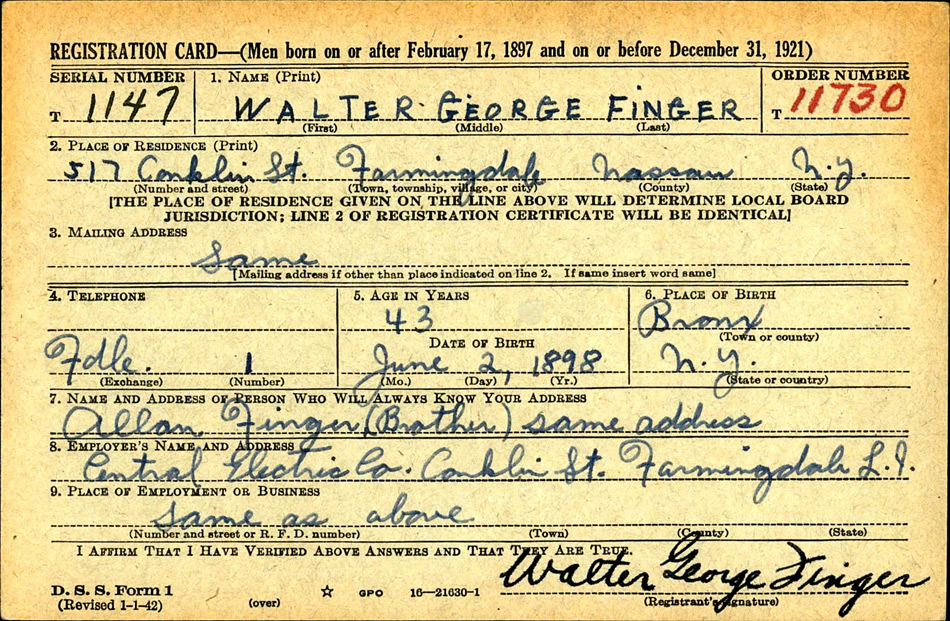 REGISTRATION CARD—(Men born on or after February 17, 1897 and on or before December 31, 1921)
SERIAL NUMBER 1. NAME (Print) ORDER NUMBER
T 1147 WALTER GEORGE FINGER T 11730
(First) (Middle) (Last)
2. PLACE OF RESIDENCE (Print)
517 Conklin St. Farmingdale Nassau N.Y.
(Number and street) (Town, township, village, or city) (County) (State)
[THE PLACE OF RESIDENCE GIVEN ON THE LINE ABOVE WILL DETERMINE LOCAL BOARD
JURISDICTION; LINE 2 OF REGISTRATION CERTIFICATE WILL BE IDENTICAL]
3. MAILING ADDRESS
Same
[Mailing address if other than place indicated on line 2. If same insert word same]
4. TELEPHONE 5. AGE IN YEARS 6. PLACE OF BIRTH
43 Bronx
DATE OF BIRTH (Town or county)
Fdle. 1 June 2, 1898 N.Y.
(Exchange) (Number) (Mo.) (Day) (Yr.) (State or country)
7. NAME AND ADDRESS OF PERSON WHO WILL ALWAYS KNOW YOUR ADDRESS
Allan Finger (Brother) same address
8. EMPLOYER'S NAME AND ADDRESS
Central Electric Co. Conklin St. Farmingdale L.I.
9. PLACE OF EMPLOYMENT OR BUSINESS
Same as above
(Number and street or R. F. D. number) (Town) (County) (State)
I AFFIRM THAT I HAVE VERIFIED ABOVE ANSWERS AND THAT THEY ARE TRUE.
Walter George Finger
D. S. S. Form 1
(Revised 1-1-42) (over) ☆ GPO 16—21630-1 (Registrant's signature)